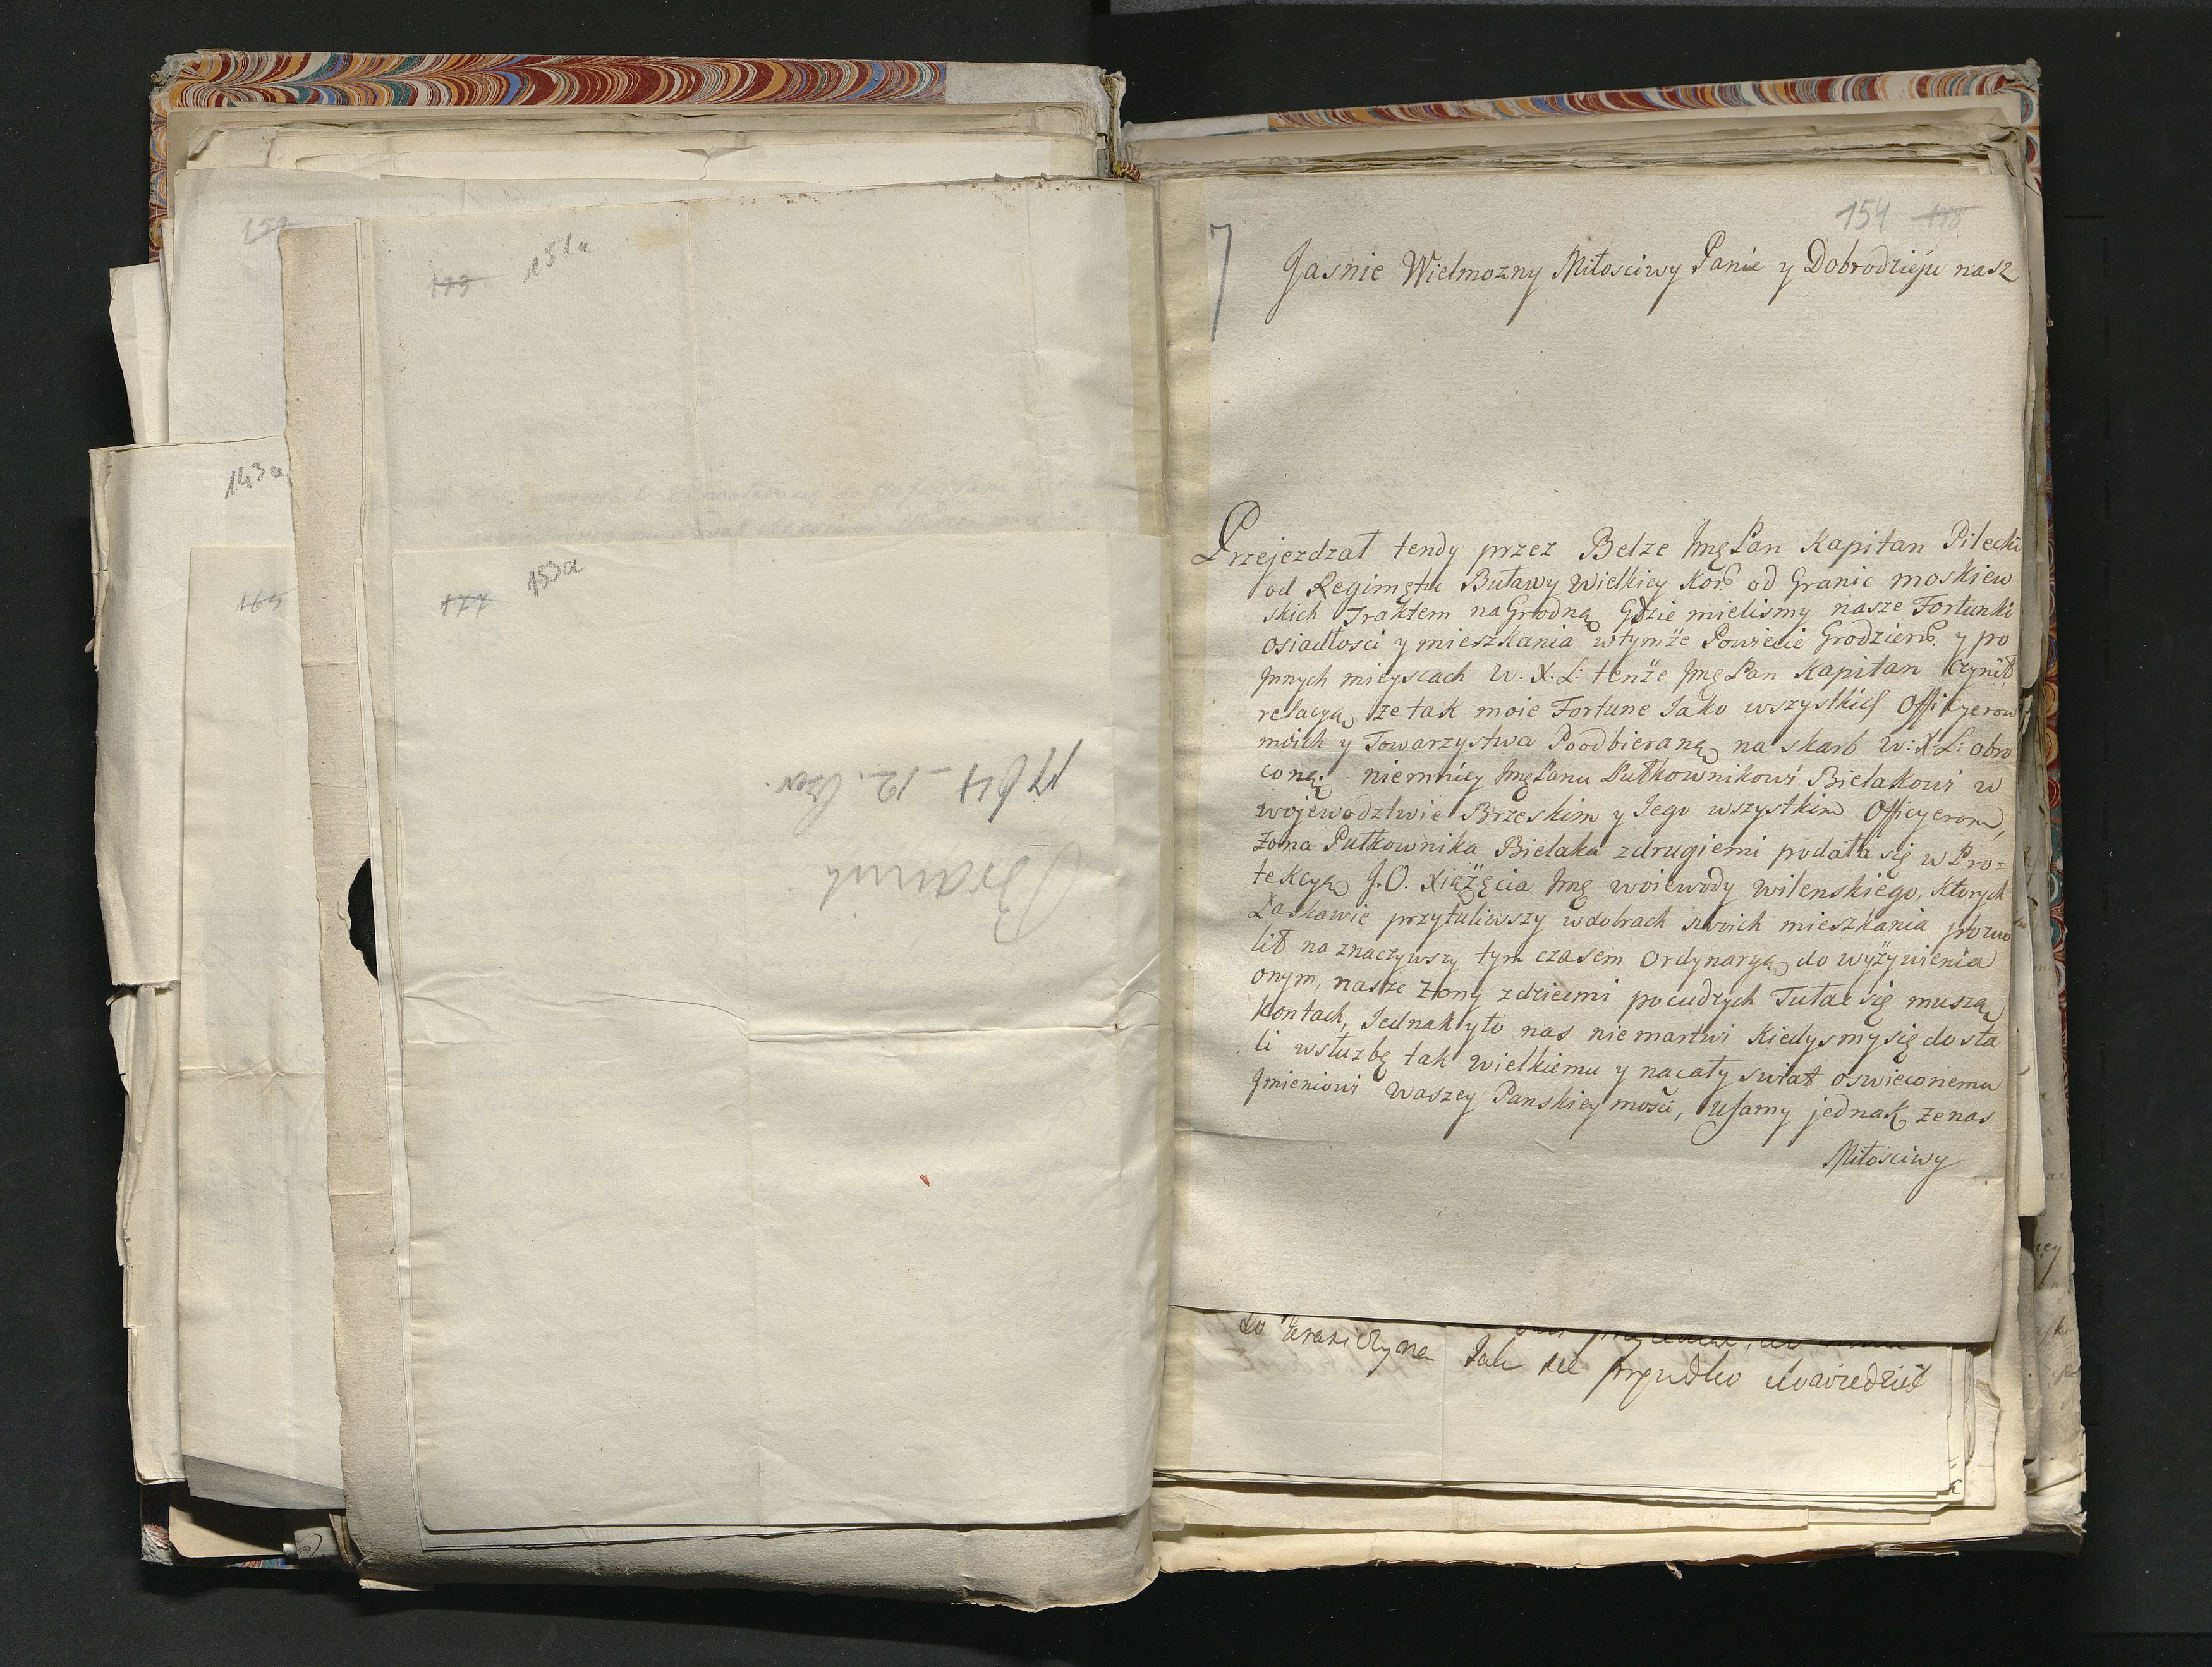 152
173
151a
143a
165
177
153a
1764 – 12. Czer.
Branick
154 178
Jasnie Wielmozny Miłosciwy Panie y Dobrodzieju nasz
Przejezdzał tendy przez Bełze Jmę Pan Kapitan Pilecki
od Regimętu Buławy Wielkiey Kor. od Granic moskiew
skich Traktem na Grodną Gdzie mielismy nasze Fortunki
osiadłosci y mieszkania w tymże Powiecie Grodzieńs. y po
Jnnych mieyscach W. X. L: tenże Jmę Pan Kapitan Czynił
relacyą że tak moie Fortune Jako wszystkich Officyerow
moich y Towarzystwa Poodbieraną na skarb W: X: L: obro
coną niemniey Jmę Panu Pułkownikowi Bielakowi w
wojewodztwie Brzeskim y Jego wszystkim Officyerom,
Zona Pułkownika Bielaka z drugiemi podała się w Pro=
tekcyą J. O. Xiążęcia Jmę woiewody wilenskiego, ktorych
Łaskawie przytuliwszy w dobrach swoich mieszkania pozwo
lił na znaczywszy tym czasem Ordynaryą do wyżywienia
onym, nasze Zony z dziećmi po cudzych Tułać się muszą
Kontach, Jednak y to nas niemartwi kiedysmy się dosta
li w służbę tak wielkiemu y na cały swiat oswieconemu
Jmieniowi Waszey Panskiey mosci, Ufamy jednak ze nas
Miłosciwy
do Krasiczyna Jak sie prędko dowiedział